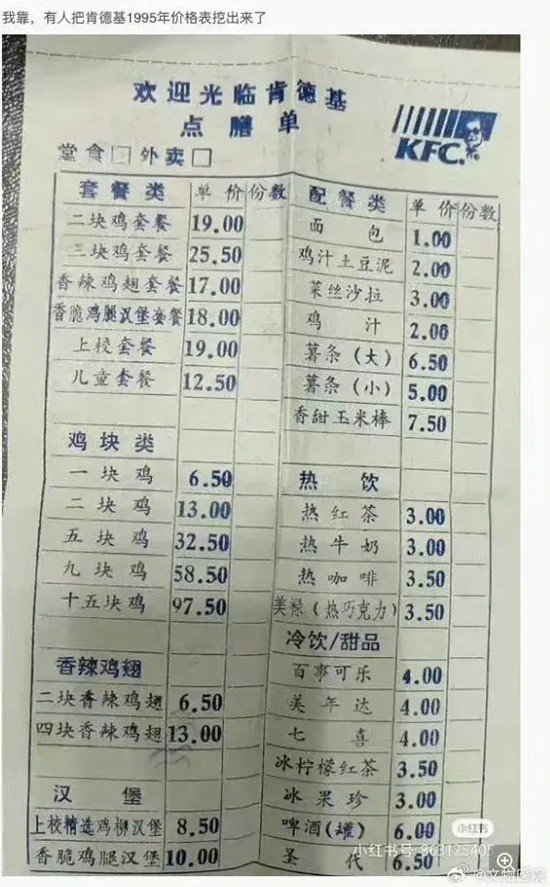 我靠，有人把肯德基1995年价格表挖出来了
欢迎光临肯德基
点膳单
KFC
堂食□外卖□
套餐类 单价 份数
二块鸡套餐 19.00
三块鸡套餐 25.50
香辣鸡翅套餐 17.00
香脆鸡腿汉堡套餐 18.00
上校套餐 19.00
儿童套餐 12.50
鸡块类
一块鸡 6.50
二块鸡 13.00
五块鸡 32.50
九块鸡 58.50
十五块鸡 97.50
香辣鸡翅
二块香辣鸡翅 6.50
四块香辣鸡翅 13.00
汉堡
上校精选鸡柳汉堡 8.50
香脆鸡腿汉堡 10.00
配餐类 单价 份数
面包 1.00
鸡汁土豆泥 2.00
菜丝沙拉 3.00
鸡汁 2.00
薯条(大) 6.50
薯条(小) 5.00
香甜玉米棒 7.50
热饮
热红茶 3.00
热牛奶 3.00
热咖啡 3.50
美禄(热巧克力) 3.50
冷饮/甜品
百事可乐 4.00
美年达 4.00
七喜 4.00
冰柠檬红茶 3.50
冰果珍 3.00
啤酒(罐) 6.00
圣代 6.50
小红书
小红书号: